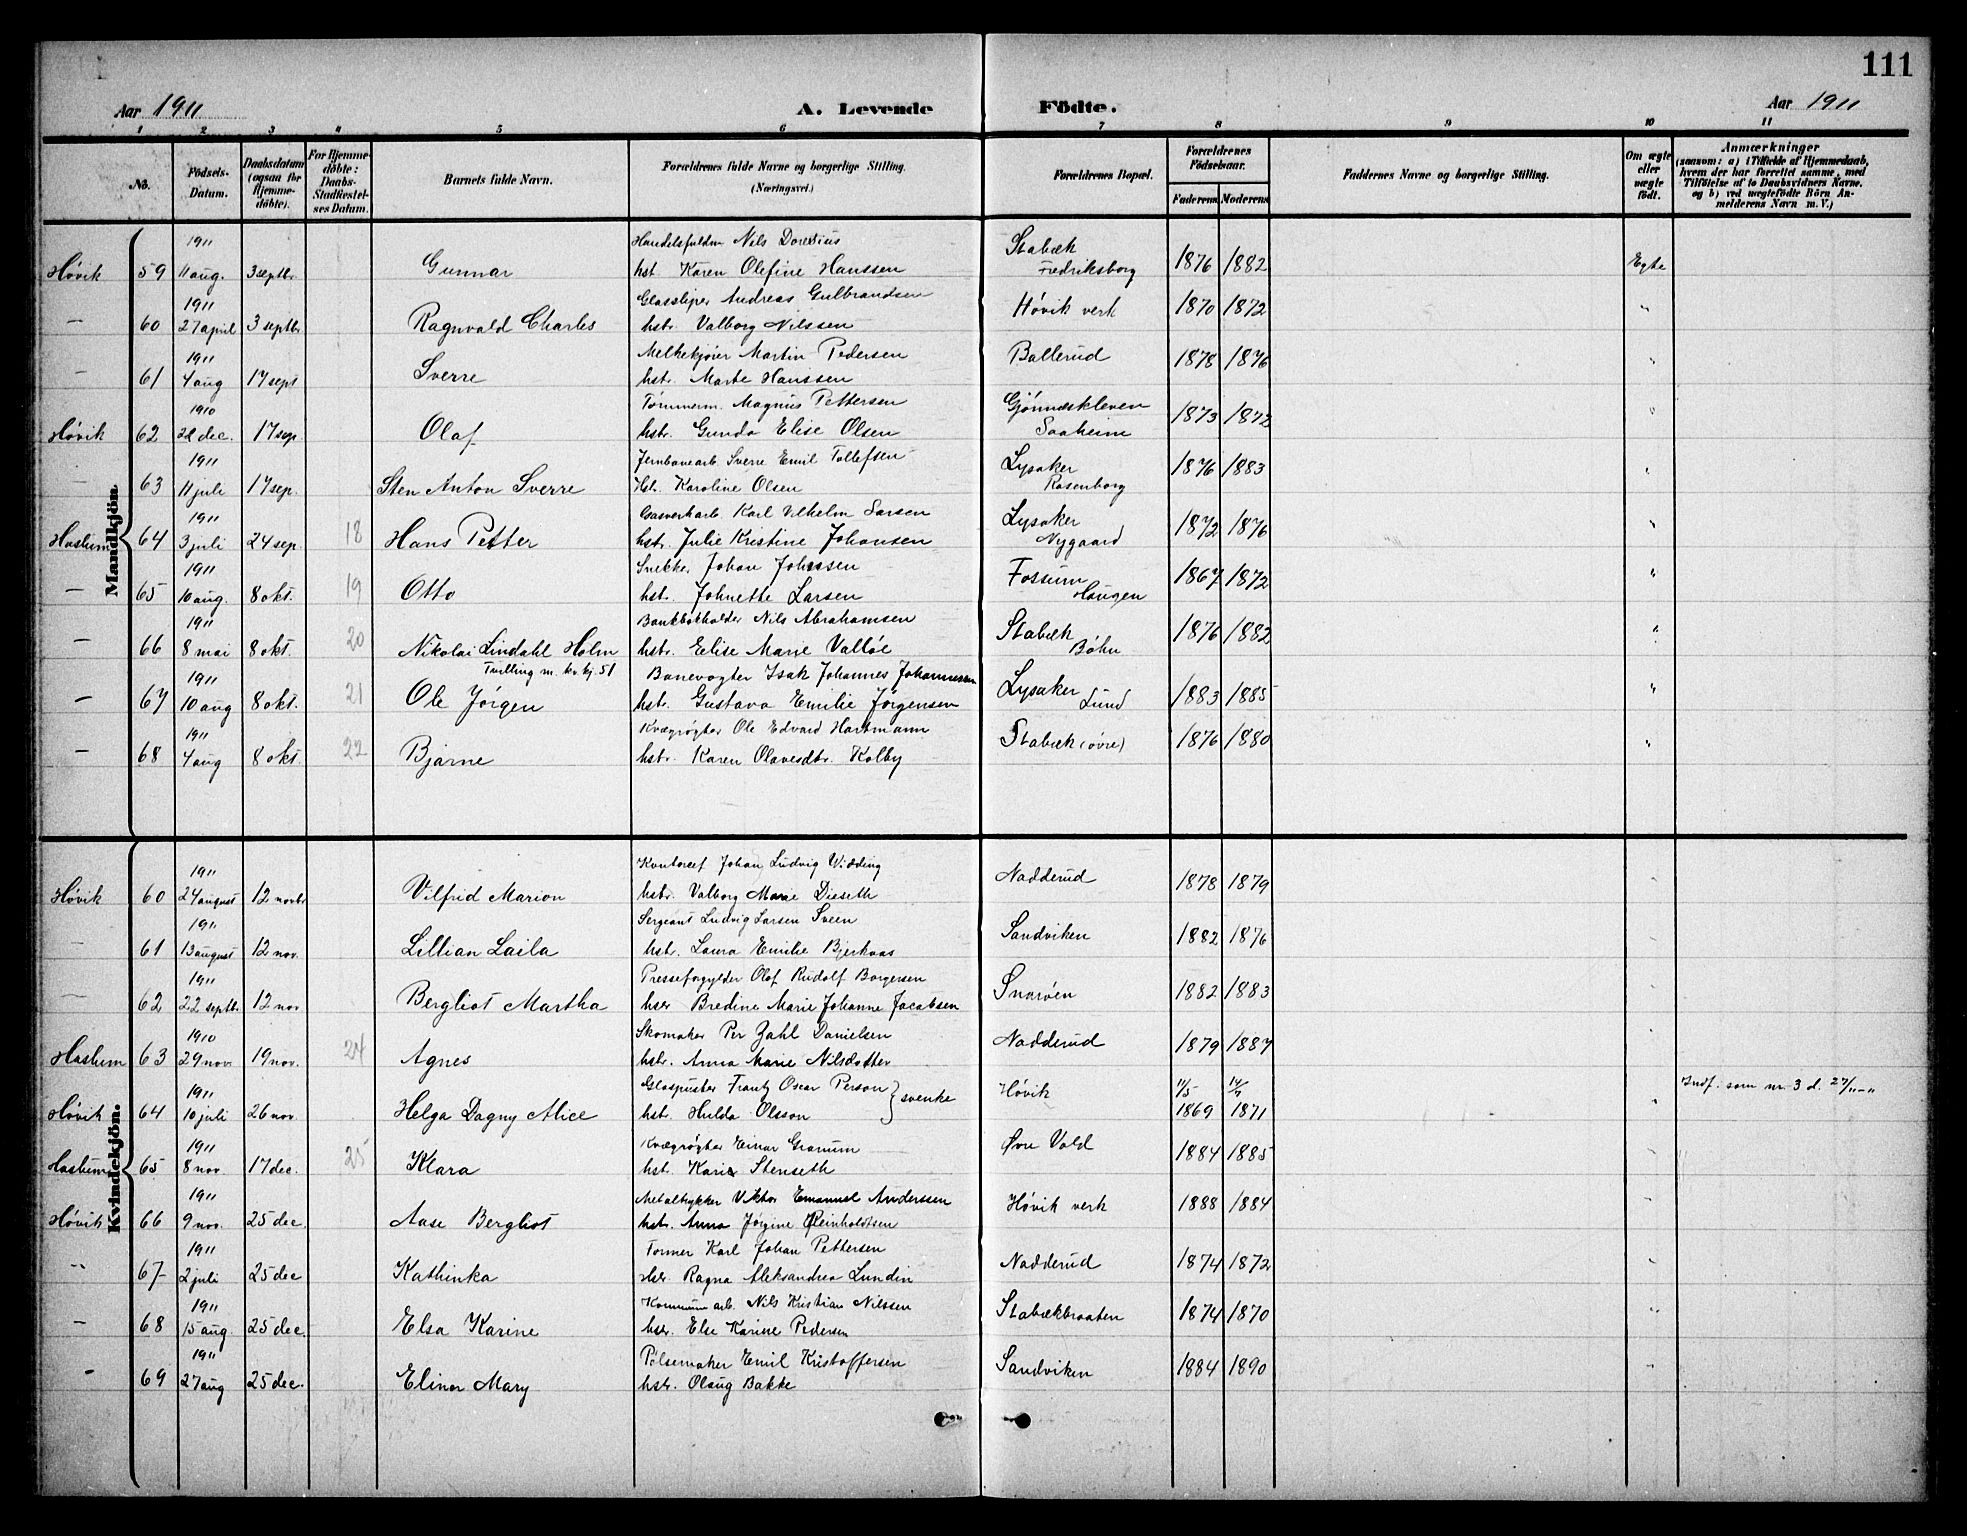 111
Aar 1911 A. Levende Födte. Aar 1911
1 2 3 4 5 6 7 8 9 10 11
No. Födsels-Datum. Daabsdatum (ogsaa for Hjemme-döbte). For Hjemme-döbte: Daabs-Stadfæstel-ses Datum. Barnets fulde Navn. Forældrenes fulde Navne og borgerlige Stilling. (Næringsvei.) Forældrenes Bopæl. Forældrenes Födselsaar. Faderens Moderens Faddernes Navne og borgerlige Stilling. Om ægte eller uægte födt. Anmærkninger (saasom: a) i Tilfælde af Hjemmedaab, hvem der har forrettet samme, med Tilföielse af to Daabsvidners Navne, og b) ved uægtefödte Börn An-melderens Navn m. V.)
Mandkjön
1911 Handelsfuldm Nils Stabæk
Høvik 59 11 aug. 3 septbr. Gunnar hst. Karen Olefine Hanssen Fredriksborg 1876 1882 Egte
1911 Glassliper Andreas Gulbrandsen
— 60 27 april 3 septbr Ragnvald Charles hstr. Valborg Nilssen Høvik verk 1870 1872 "
1911 Melkekjører Martin Pedersen
— 61 4 aug 17 sept Sverre hstr. Marte Hanssen Ballerud 1878 1876 "
1910 Tømmerm. Magnus Pettersen Gjønnæskleven
Høvik 62 22 dec. 17 sep Olaf hstr. Gunda Elise Olsen Saaheim 1873 1872 "
1911 Jernbanearb. Sverre Emil Tollefsen Lysaker
— 63 11 juli 17 sep. Sten Anton Sverre Hst. Karoline Olsen Rosenborg 1876 1883 "
1911 Gasverkarb. Karl Vilhelm Larsen Lysaker
Haslum 64 3 juli 24 sep. 18 Hans Petter hstr. Julie Kristine Johansen Nygaard 1872 1876 "
1911 Snekker Johan Johnssen Fossum
— 65 10 aug. 8 okt. 19 Otto hst. Johnette Larsen Haugen 1867 1872 "
1911 Bankbokholder Nils Abrahamsen Stabæk
— 66 8 mai 8 okt. 20 Nikolai Lindahl Holm hstr. Elise Marie Valløe Bøhn 1876 1882 "
1911 Tvilling m. kv. kj. 51 Banevogter Isak Johannes Johannessen Lysaker
— 67 10 aug 8 okt. 21 Ole Jørgen hstr. Gustava Emilie Jørgensen Lund 1883 1885 "
1911 Kvægrøgter Ole Edvard Hartmann
— 68 4 aug 8 okt. 22 Bjarne hstr. Karen Olavesdtr. Kolby Stabæk (øvre) 1876 1880 "
Kvindekjön.
1911 Kontorchef Johan Ludvig Widding
Høvik 60 24 august 12 novbr Vilfrid Marion hstr. Valborg Marie Dieseth Nadderud 1878 1879 "
1911 Sergeant Ludvig Larsen Sveen
— 61 13 august 12 nov. Lillian Laila hst. Laura Emilie Bjerkaas Sandviken 1882 1876 "
1911 Presseforgylder Olaf Rudolf Borgersen
— 62 22 septb. 12 nov Bergliot Martha hstr Bredine Marie Johanne Jacobsen Snarøen 1882 1883
1910 Skomaker Per Zahl Danielsen
Haslum 63 29 nov. 19 nov. 24 Agnes hstr. Anna Marie Nilsdotter Nadderud 1879 1887
1911 Glaspuster Frantz Oscar Person } svenske 11/5 14/7 Indf. som nr. 3 d. 27/11-11
Høvik 64 10 juli 26 nov Helga Dagny Alice hst. Hulda Olsson Høvik 1869 1871 "
1911 Kvægrøgter Einar Granum
Haslum 65 8 nov. 17 dec. 25 Klara hst. Karie Stenseth Øvre Vold 1884 1885
1911 Metaltrykker Viktor Emanuel Anderssen
Høvik 66 9 nov. 25 dec. Aase Bergliot hstr. Anna Jørgine Reinholdtsen Høvik verk 1888 1884
1911 Former Karl Johan Pettersen
" 67 2 juli 25 dec Kathinka Hst. Ragna Aleksandra Lundin Nadderud 1874 1872
1911 Kommunearb. Nils Kristian Nilssen
— 68 15 aug. 25 dec. Elsa Karine hstr. Else Karine Pedersen Stabækbraaten 1874 1870 "
1911 Pølsemaker Emil Kristoffersen
— 69 27 aug 25 dec. Elinor Mary hstr. Olaug Bakke Sandviken 1884 1890 "